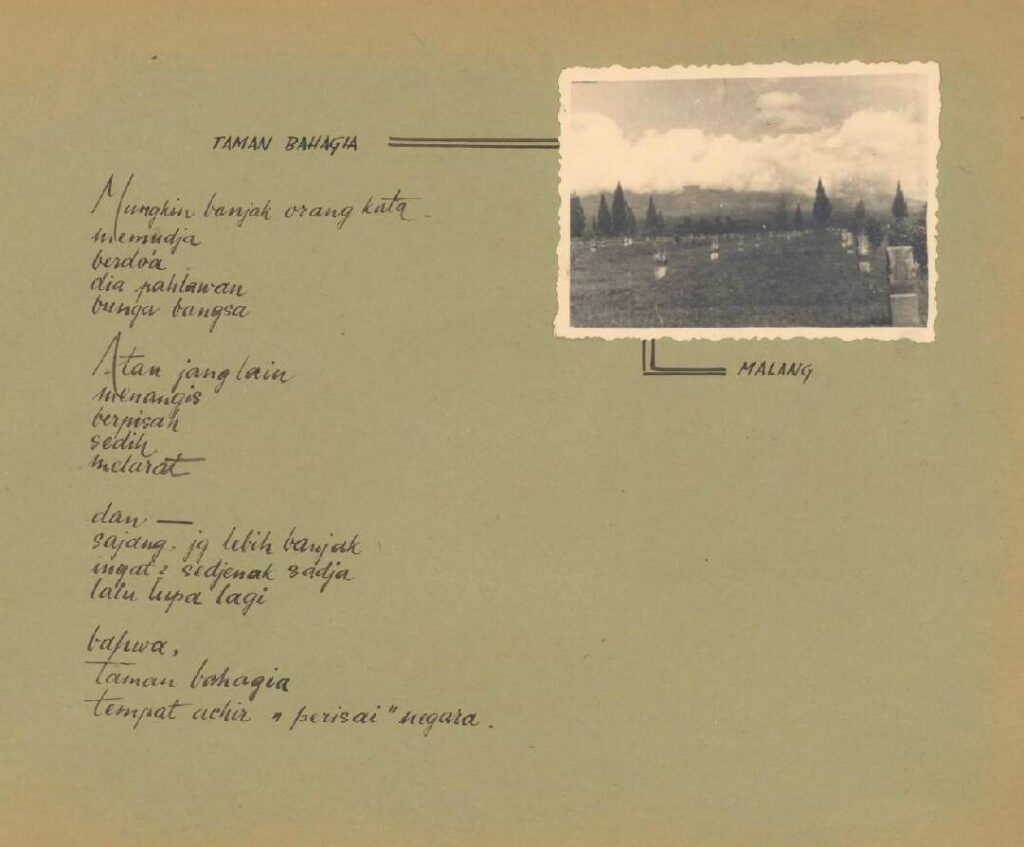 TAMAN BAHAGIA
Mungkin banjak orang kata
memudja
berdo'a
dia pahlawan
bunga bangsa
Atau jang lain
menangis
berpisah
sedih
melarat
dan —
sajang, jg lebih banjak
ingat2 sedjenak sadja
lalu lupa lagi
bahwa,
Taman bahagia
tempat achir „perisai" negara.
MALANG